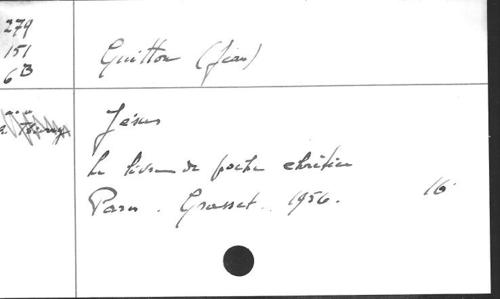 279
151
6B
Guitton (Jean)
Jésus
Le livre de poche chrétien
Paris. Grasset. 1956. 16°